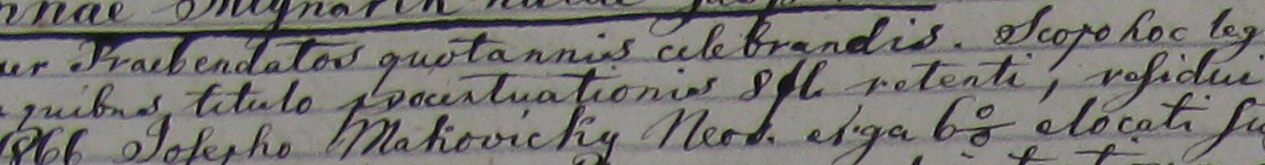 nnae
ur Praebendatos quotannis celebrandis. Scopo hoc leg
quibus titulo 8 fl. retenti, residui
866 Josepho Makovicky Neos. erga 6% elocati su